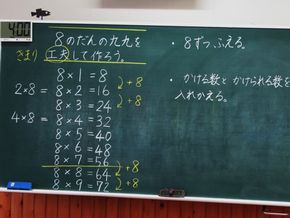 4:00
8のだんの九九を
きまり 工夫して作ろう。
8 × 1 = 8
2×8 = 8 × 2 = 16
8 × 3 = 24
4×8 = 8 × 4 = 32
8 × 5 = 40
8 × 6 = 48
8 × 7 = 56
8 × 8 = 64
8 × 9 = 72
+8
+8
+8
+8
・8ずつふえる。
・かける数とかけられる数を
入れかえる。